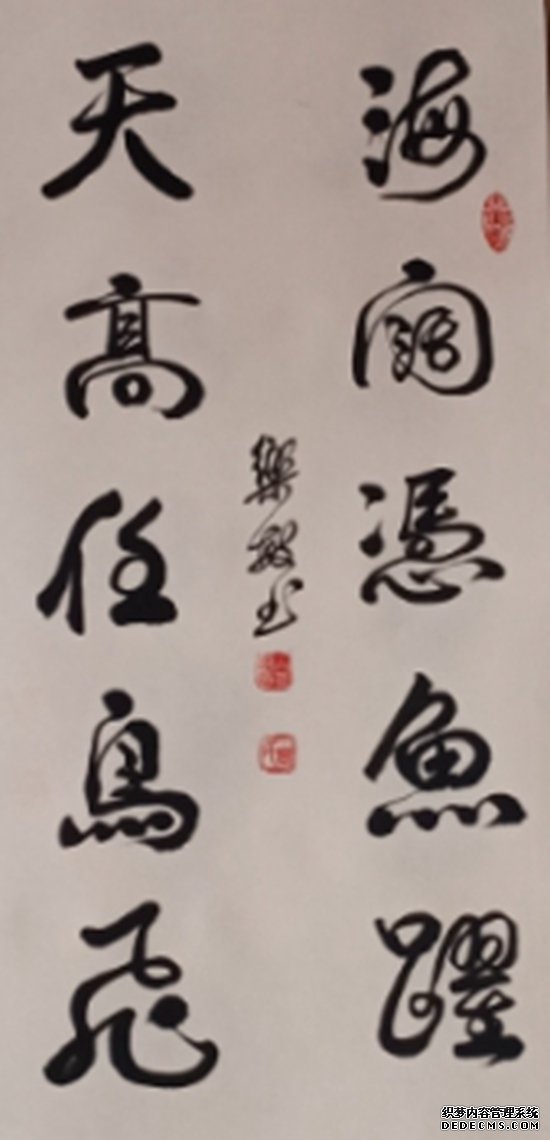 海阔憑魚躍
天高任鳥飛
织梦内容管理系统
DEDECMS.COM